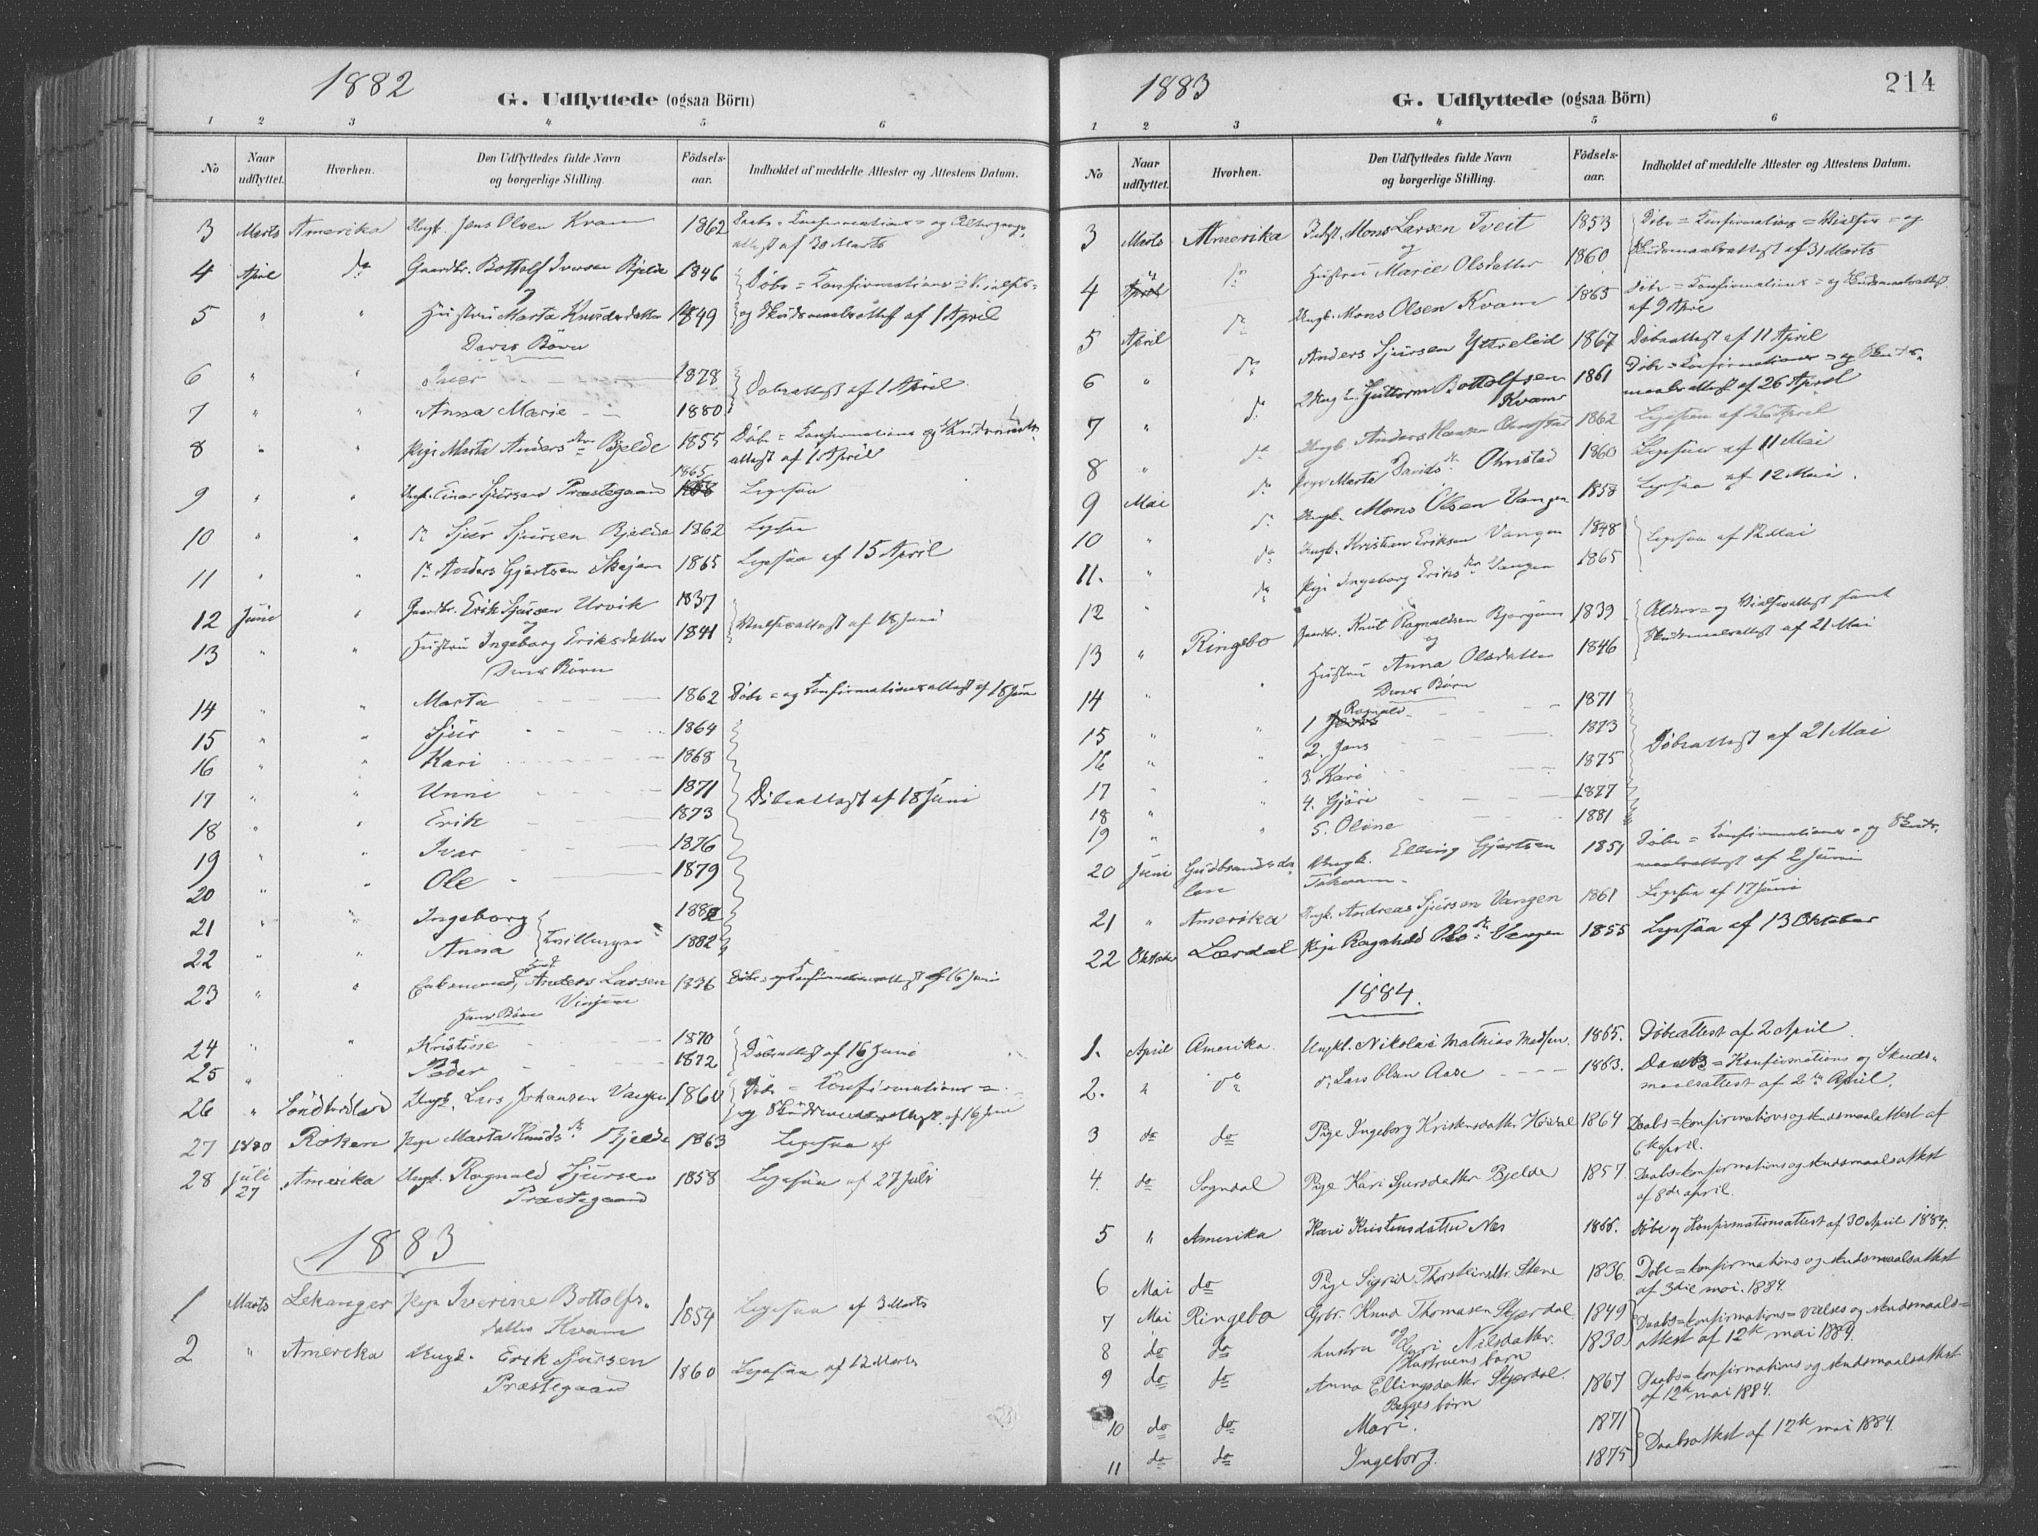 1882
G. Udflyttede (ogsaa Börn)
1 2 3 4 5 6
No Naar udflyttet. Hvorhen. Den Udflyttedes fulde Navn og borgerlige Stilling. Födsels-aar. Indholdet af meddelte Attester og Attestens Datum.
3 Marts Amerika Ungk. Jens Olsen Kvam 1862 Daabs = Konfirmations = og Altergangs
attest af 30 Marts
4 April do Gaardbr. Bottolf Iversen Bjelde 1846 Döbe = Konfirmations = Vielses =
og
5 " " Hustru Marta Knudsdatter 1849 og Skudsmaalsattest af 1 April
Deres Börn
6 " " Iver 1878 Dobeattest af 1 April
7 " " Anna Marie 1880
8 " " Pige Marta Andersdtr Bjelde 1855 Döbe = Konfirmations og Skudsmaals
attest af 1 April
9 " " Ungk. Einar Sjursen Præstegaard 1865 Ligesaa
10 " " do Sjur Sjursen Bjelde 1862 Ligesaa
11 " " do Anders Gjertsen Skajem 1865 Ligesaa af 15 April
12 Juni " Gaardbr. Erik Sjursen Urvik 1837
og
13 " " Hustru Ingeborg Eriksdatter 1841 Vielsesattest af 18 Juni
Deres Börn
14 " " Marta 1862 Döbe = og Konfirmationsattest af 18 Juni
15 " " Sjur 1864
16 " " Kari 1868
17 " " Unni 1871 Döbeattest af 18 Juni
18 " " Erik 1873
19 " " Ivar 1876
20 " " Ole 1879
21 " " Ingeborg 1882
22 " " Anna Tvillinger 1882
23 " " Enkemand Anders Larsen 1836 Döbe = og Konfirmationsattest af 16 Juni
Vinjum
Hans Börn
24 " " Kristine 1870 Döbeattest af 16 Juni
25 " Peder 1872
26 " Söndtordland Ungk. Lars Johansen Vangen 1860 Döbe = Konfirmations =
og Skudsmaalsattest af 16 Juni
27 1880 Röken Pige Marta Knudsdr Bjelde 1863 Ligesaa af
28 Juli 27 Amerika Ungk. Ragnald Sjursen 1858 Ligesaa af 27 Juli
Præstegaard
1883
1 Marts Lekanger Pige Iverine Bottolfs- 1854 Ligesaa af 3 Marts
datter Kvam
2 " Amerika Ungk. Erik Sjursen 1860 Ligesaa af 12 Marts
Præstegaard
1883
G. Udflyttede (ogsaa Börn)
214
1 2 3 4 5 6
No Naar udflyttet. Hvorhen. Den Udflyttedes fulde Navn og borgerlige Stilling. Födsels-aar. Indholdet af meddelte Attester og Attestens Datum.
3 Marts Amerika Indst. Mons Larsen Tveit 1853 Döbe = Konfirmations = Vielses = og
og
do Hustru Marie Olsdatter 1860 Skudsmaalsattest af 31 Marts
4 " do Ungk. Mons Olsen Kvam 1865 Döbe = Konfirmations = og Skudsmaalsattest
af 9 April
5 April do Anders Sjursen Ytrelid 1867 Döbeattest af 11 April
6 " do Ungk. Guttorm Bottolfsen 1861 Döbe = Konfirmations = og Skuds-
Kvam maalsattest af 26 April
7 " do Ungk. Anders Hansen Ohnstad 1862 Ligesaa af 26 April
8 " do Pige Marta Davidsdr Ohnstad 1860 Ligesaa af 11 Mai
9 Mai do Ungk. Mons Olsen Vangen 1858 Ligesaa af 12 Mai.
10 " do Ungk. Kristian Eriksen Vangen 1848 Ligesaa af 12 Mai
11. " do Pige Ingeborg Eriksdtr Vangen 1865
12 " Gaardbr. Knut Ragnaldsen Bjørgum 1839 Alders = og Vielsesattest samt
og
13 " Ringebo Hustru Anna Olsdatter 1846 Skudsmaalsattest af 21 Mai
Deres Börn
14 " " 1 Ragnald 1871
15 " " 2. Jens 1873 Döbeattest af 21 Mai
16 " " 3. Kari 1875
17 " " 4. Gjöri 1877
18 " " 5. Oline 1881
19 "
20 Juni Gudbrandsda- Ungk. Elling Gjertsen 1851 Döbe = Konfirmations = og Skuds-
len Tokvam maalsattest af 2 Juni
21 " Amerika Ungk. Andreas Sjursen Vangen 1861 Ligesaa af 17 Juni
22 Oktober Lærdal Pige Ragnhild Olsdr Vangen 1855 Ligesaa af 13 Oktober
1884.
1. April Amerika. Ungkl. Nikolai Mathias Madsen. 1865. Döbeattest af 2 April.
2. " do do Lars Olsen Aase 1863. Daabs = Konfirmations og Skuds=
maalsattest af 2den April.
3 do do Pige Ingeborg Kristensdatter Hövdal 1864 Daabs = konfirmations og skudsmaalsattest af
6te april.
4. do Sogndal Pige Kari Sjursdatter Bjelde 1857. Daabs = konfirmations og skudsmaalsattest
af 8de april.
5 " Amerika Kari Kristensdatter Næs 1866. Döbe og Konfirmationsattest af 30 April 1884.
6 Mai do Pige Sigrid Thorsteinsdtr. Stene 1836. Döbe = konfirmations og skudsmaalsattest
af 3die mai. 1884.
7 Mai Ringebo Grbr. Knud Thomasen Skjerdal 1849 Daabs = konfirmations = vielses og skudsmaals=
og
8 do do hustru Kari Nilsdatter. 1830 attest af 12te mai 1884.
Hustruens börn
9 do do Anna Ellingsdatter Skjerdal. 1867 Daabs = konfirmations og skudsmaalsattest
af 12te mai 1884.
Begges börn
10 do do Mari. 1871 Daabsattest af 12te mai 1884.
11 do do Ingeborg. 1875